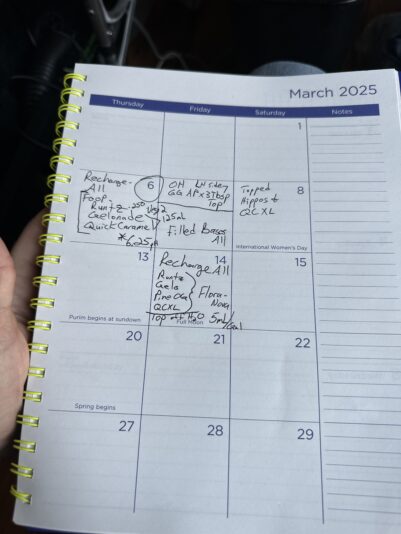 March 2025
Thursday Friday Saturday Notes
1
Recharge-
All
6
Runtz .250
Gelonade
Quick Caramel
*6.25ph
125ml
OH
GG AFx3Tbsp
Top
Filled Bases
All
8
Topped
Hippos &
QCXL
International Women's Day
13
Purim begins at sundown
14
Recharge All
Runtz
Gela
Pine OG
QCXL
Flora-
Nova
Top off H2O 5ml/Gal
Full Moon
15
20
Spring begins
21
22
27
28
29